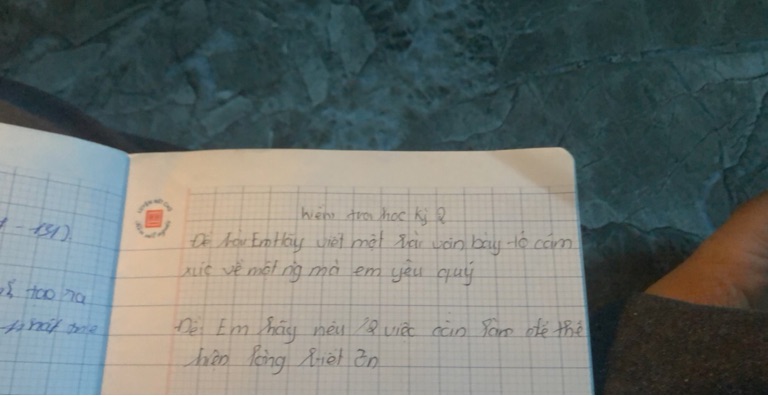 Kiểm tra học kỳ 2
Đề bài Em Hãy viết một bài văn bày tỏ cảm
xúc về một ng mà em yêu quý
Đề: Em hãy nêu 2 việc cần làm để thể
hiện lòng biết ơn
tạo ra
nhất